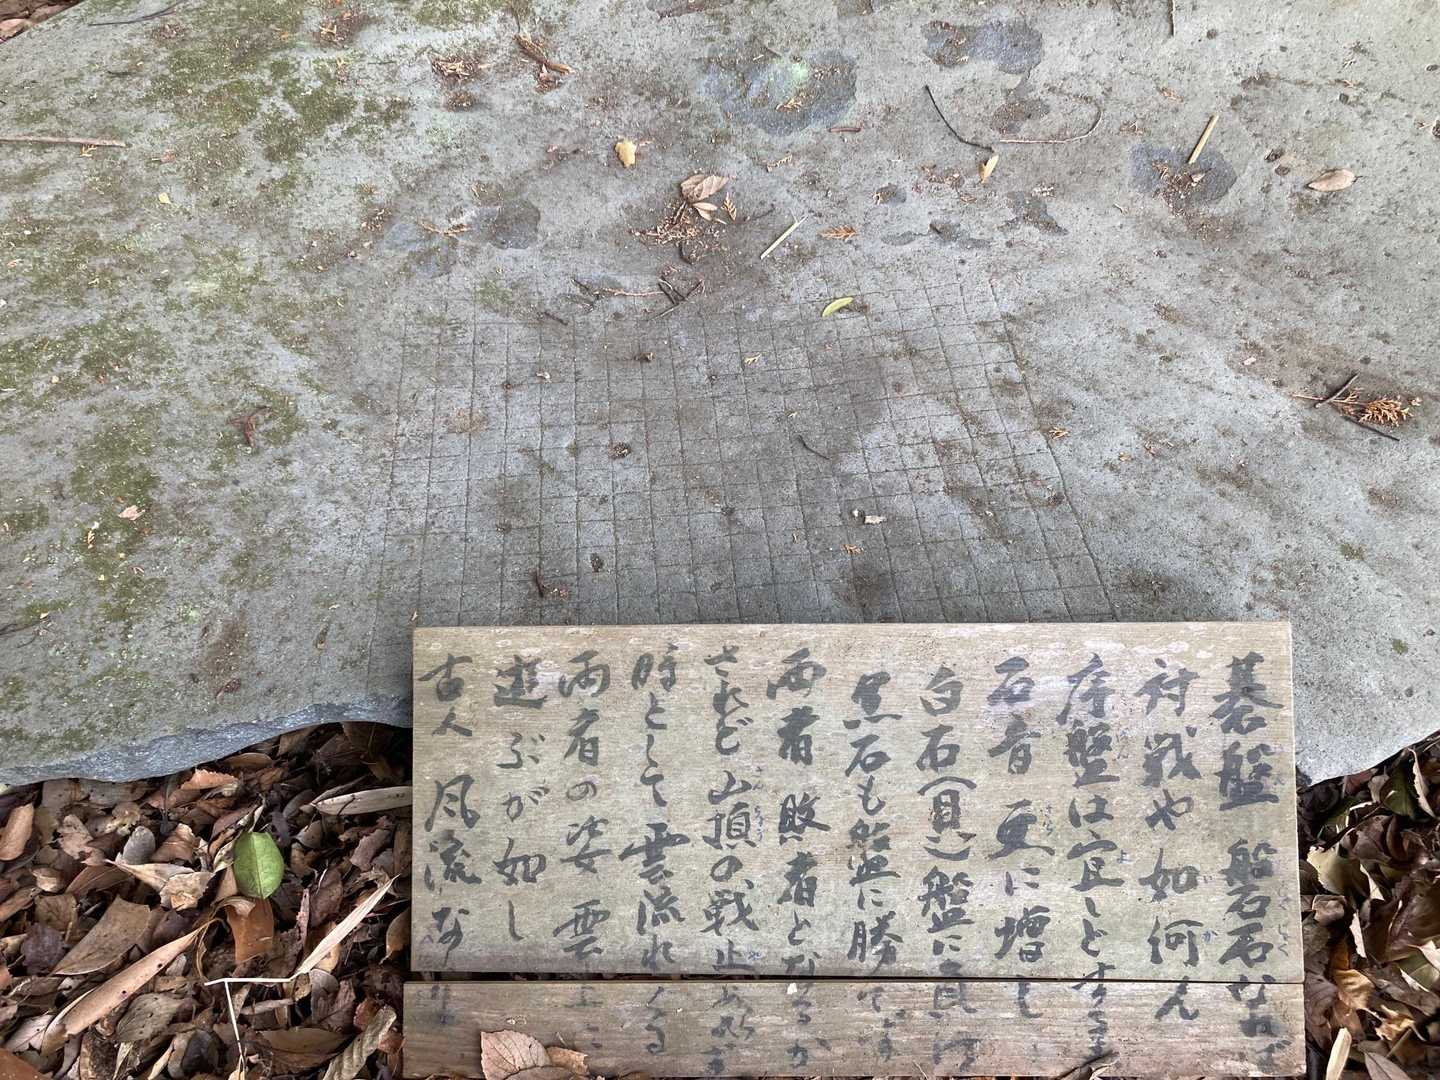 碁盤 磐石なれど
対戦や如何ん
序盤は宜しとするも
石音 更に増し
白石(貝)盤に
黒石も盤に勝
両者 敗者となるか
されど山頂の戦止
時として雲流れくる
両者の姿 雲上に
遊ぶが如し
古人 風流なり